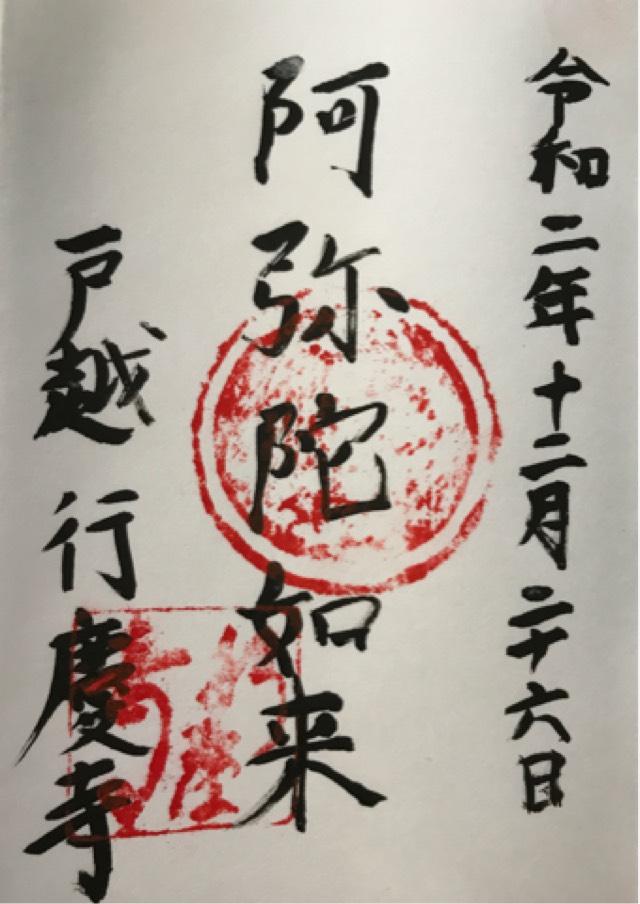 令和二年十二月二十六日
阿弥陀如来
戸越 行慶寺